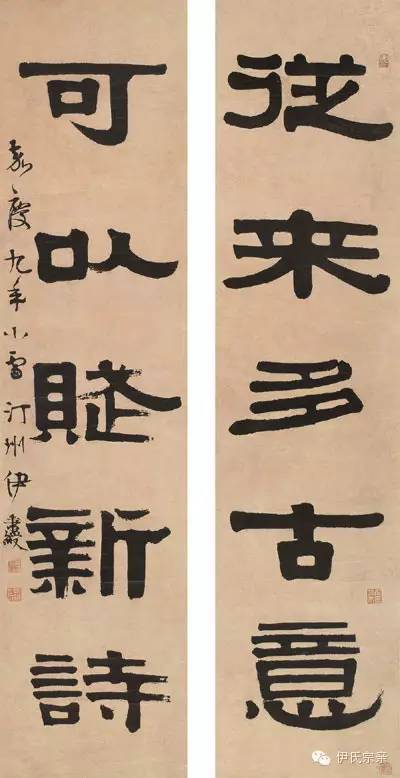 從来多古意
可以賦新詩
嘉慶九年小雪汀州伊秉綬
伊氏宗亲